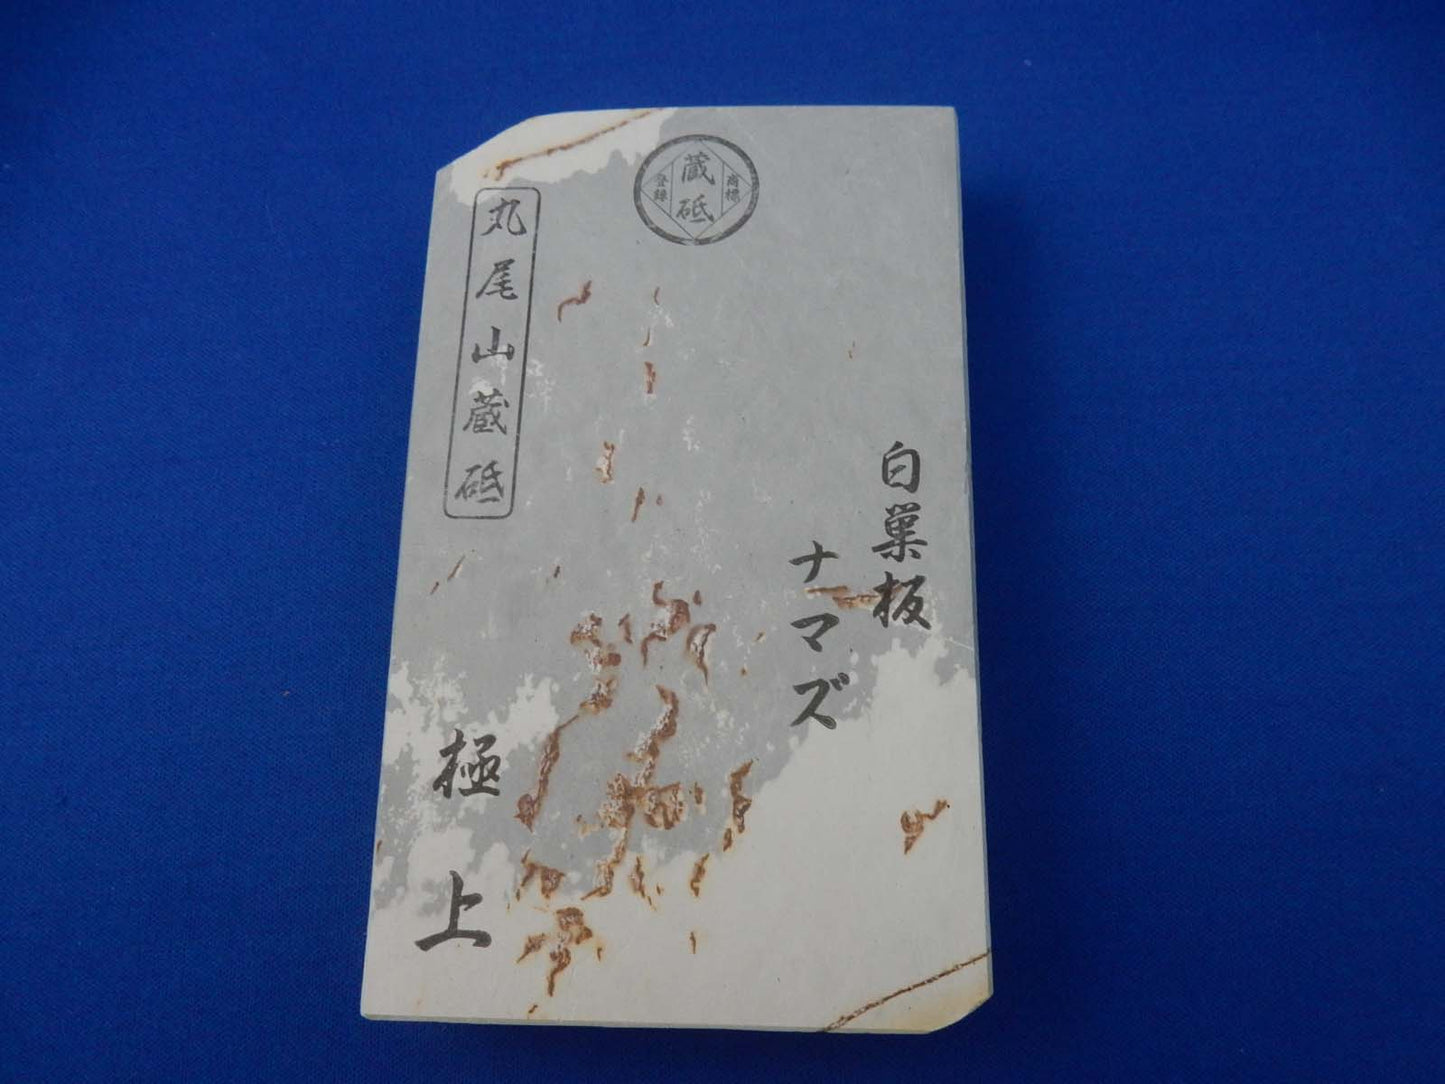 蔵砥
商標
登録
白巣板
ナマズ
丸尾山蔵砥
極上